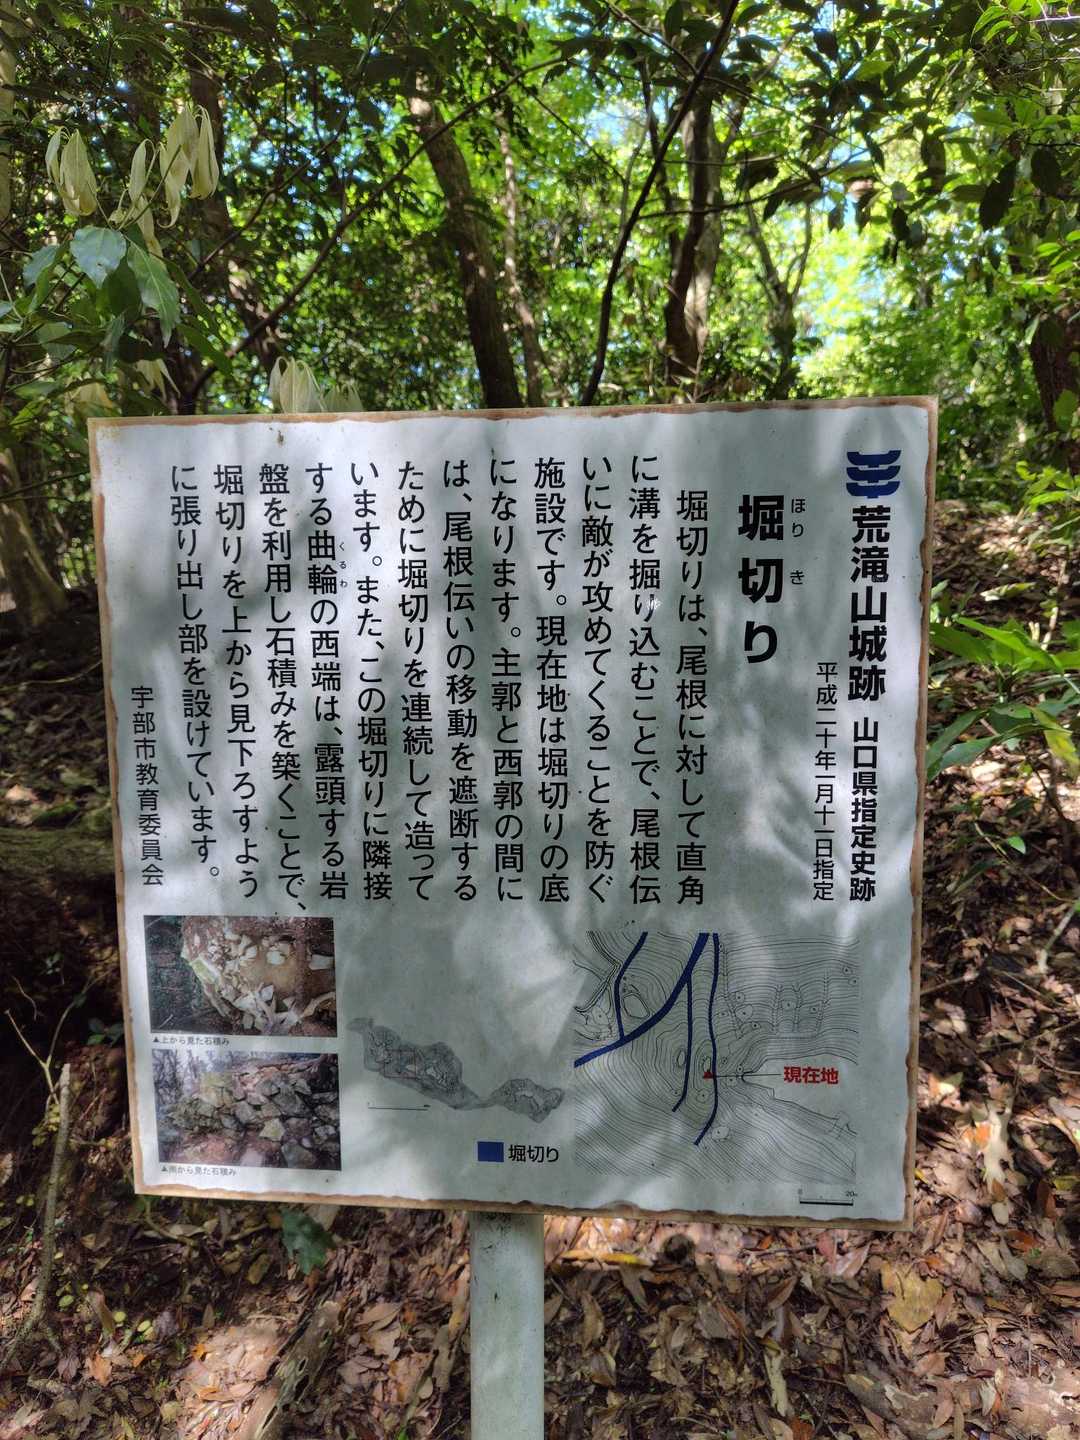 荒滝山城跡 山口県指定史跡
平成二十年一月十一日指定
ほり き
堀切り
堀切りは、尾根に対して直角
に溝を掘り込むことで、尾根伝
いに敵が攻めてくることを防ぐ
施設です。現在地は堀切りの底
になります。主郭と西郭の間に
は、尾根伝いの移動を遮断する
ために堀切りを連続して造って
います。また、この堀切りに隣接
する曲輪の西端は、露頭する岩
くるわ
盤を利用し石積みを築くことで、
堀切りを上から見下ろすよう
に張り出し部を設けています。
宇部市教育委員会
▲上から見た石積み
▲南から見た石積み
堀切り
現在地
0 20m